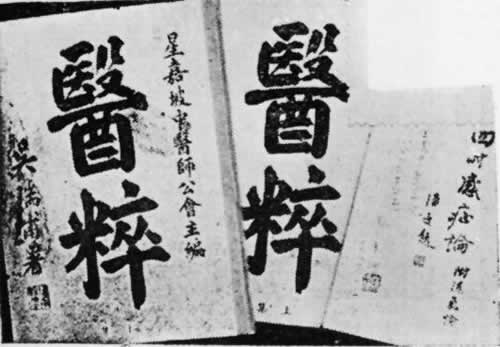 星嘉坡中醫師公會主編
醫粹
吳瑞甫著
醫粹
上集
四時感症論